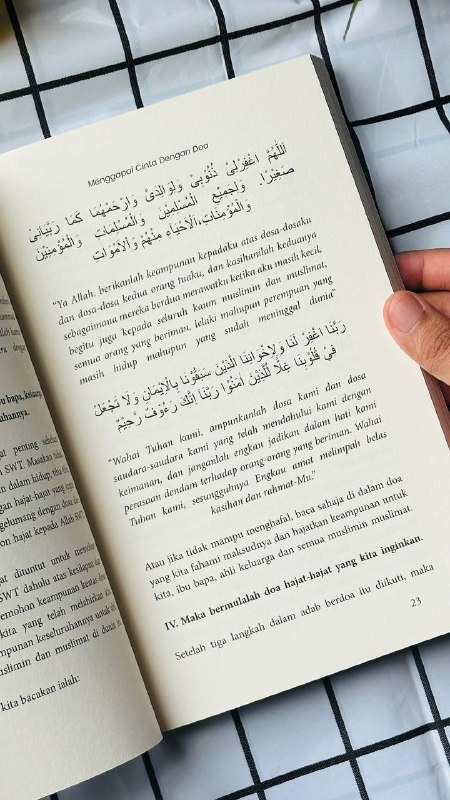 u bapa, keluarg
uhannya.
penting sebelum
SWT. Masakan tidak
dalam hidup, tiba
hajat-hajat yang
gelumang dengan dosa dan
on hajat kepada Allah SWT.
dituntut untuk memohon
SWT dahulu atas kesilapan
emohon keampunan kedua
kita yang telah melahirkan
ampunan keseluruhannya untuk
slimin dan muslimat di dunia
kita bacakan ialah:
Menggapai Cinta Dengan Doa
اَللّٰهُمَّ اغْفِرْلِيْ ذُنُوْبِيْ وَلِوَالِدَيَّ وَارْحَمْهُمَا كَمَا رَبَّيَانِيْ
صَغِيْرًا. وَلِجَمِيْعِ الْمُسْلِمِيْنَ وَالْمُسْلِمَاتِ وَالْمُؤْمِنِيْنَ
وَالْمُؤْمِنَاتِ، اَلْاَحْيَاءِ مِنْهُمْ وَالْاَمْوَاتِ
"Ya Allah, berikanlah keampunan kepadaku atas dosa-dosaku
dan dosa-dosa kedua orang tuaku, dan kasihanilah keduanya
sebagaimana mereka berdua merawatku ketika aku masih kecil,
begitu juga kepada seluruh kaum muslimin dan muslimat,
semua orang yang beriman, lelaki mahupun perempuan yang
masih hidup mahupun yang sudah meninggal dunia"
رَبَّنَا اغْفِرْ لَنَا وَلِإِخْوَانِنَا الَّذِيْنَ سَبَقُوْنَا بِالْإِيْمَانِ وَلَا تَجْعَلْ
فِيْ قُلُوْبِنَا غِلًّا لِّلَّذِيْنَ آمَنُوْا رَبَّنَا إِنَّكَ رَءُوْفٌ رَّحِيْمٌ
"Wahai Tuhan kami, ampunkanlah dosa kami dan dosa
saudara-saudara kami yang telah mendahului kami dengan
keimanan, dan janganlah engkau jadikan dalam hati kami
perasaan dendam terhadap orang-orang yang beriman. Wahai
Tuhan kami, sesungguhnya Engkau amat melimpah belas
kasihan dan rahmat-Mu."
Atau jika tidak mampu menghafal, baca sahaja di dalam doa
yang kita fahami maksudnya dan hajatkan keampunan untuk
kita, ibu bapa, ahli keluarga dan semua muslimin muslimat.
IV. Maka bermulalah doa hajat-hajat yang kita inginkan.
Setelah tiga langkah dalam adab berdoa itu diikuti, maka
23